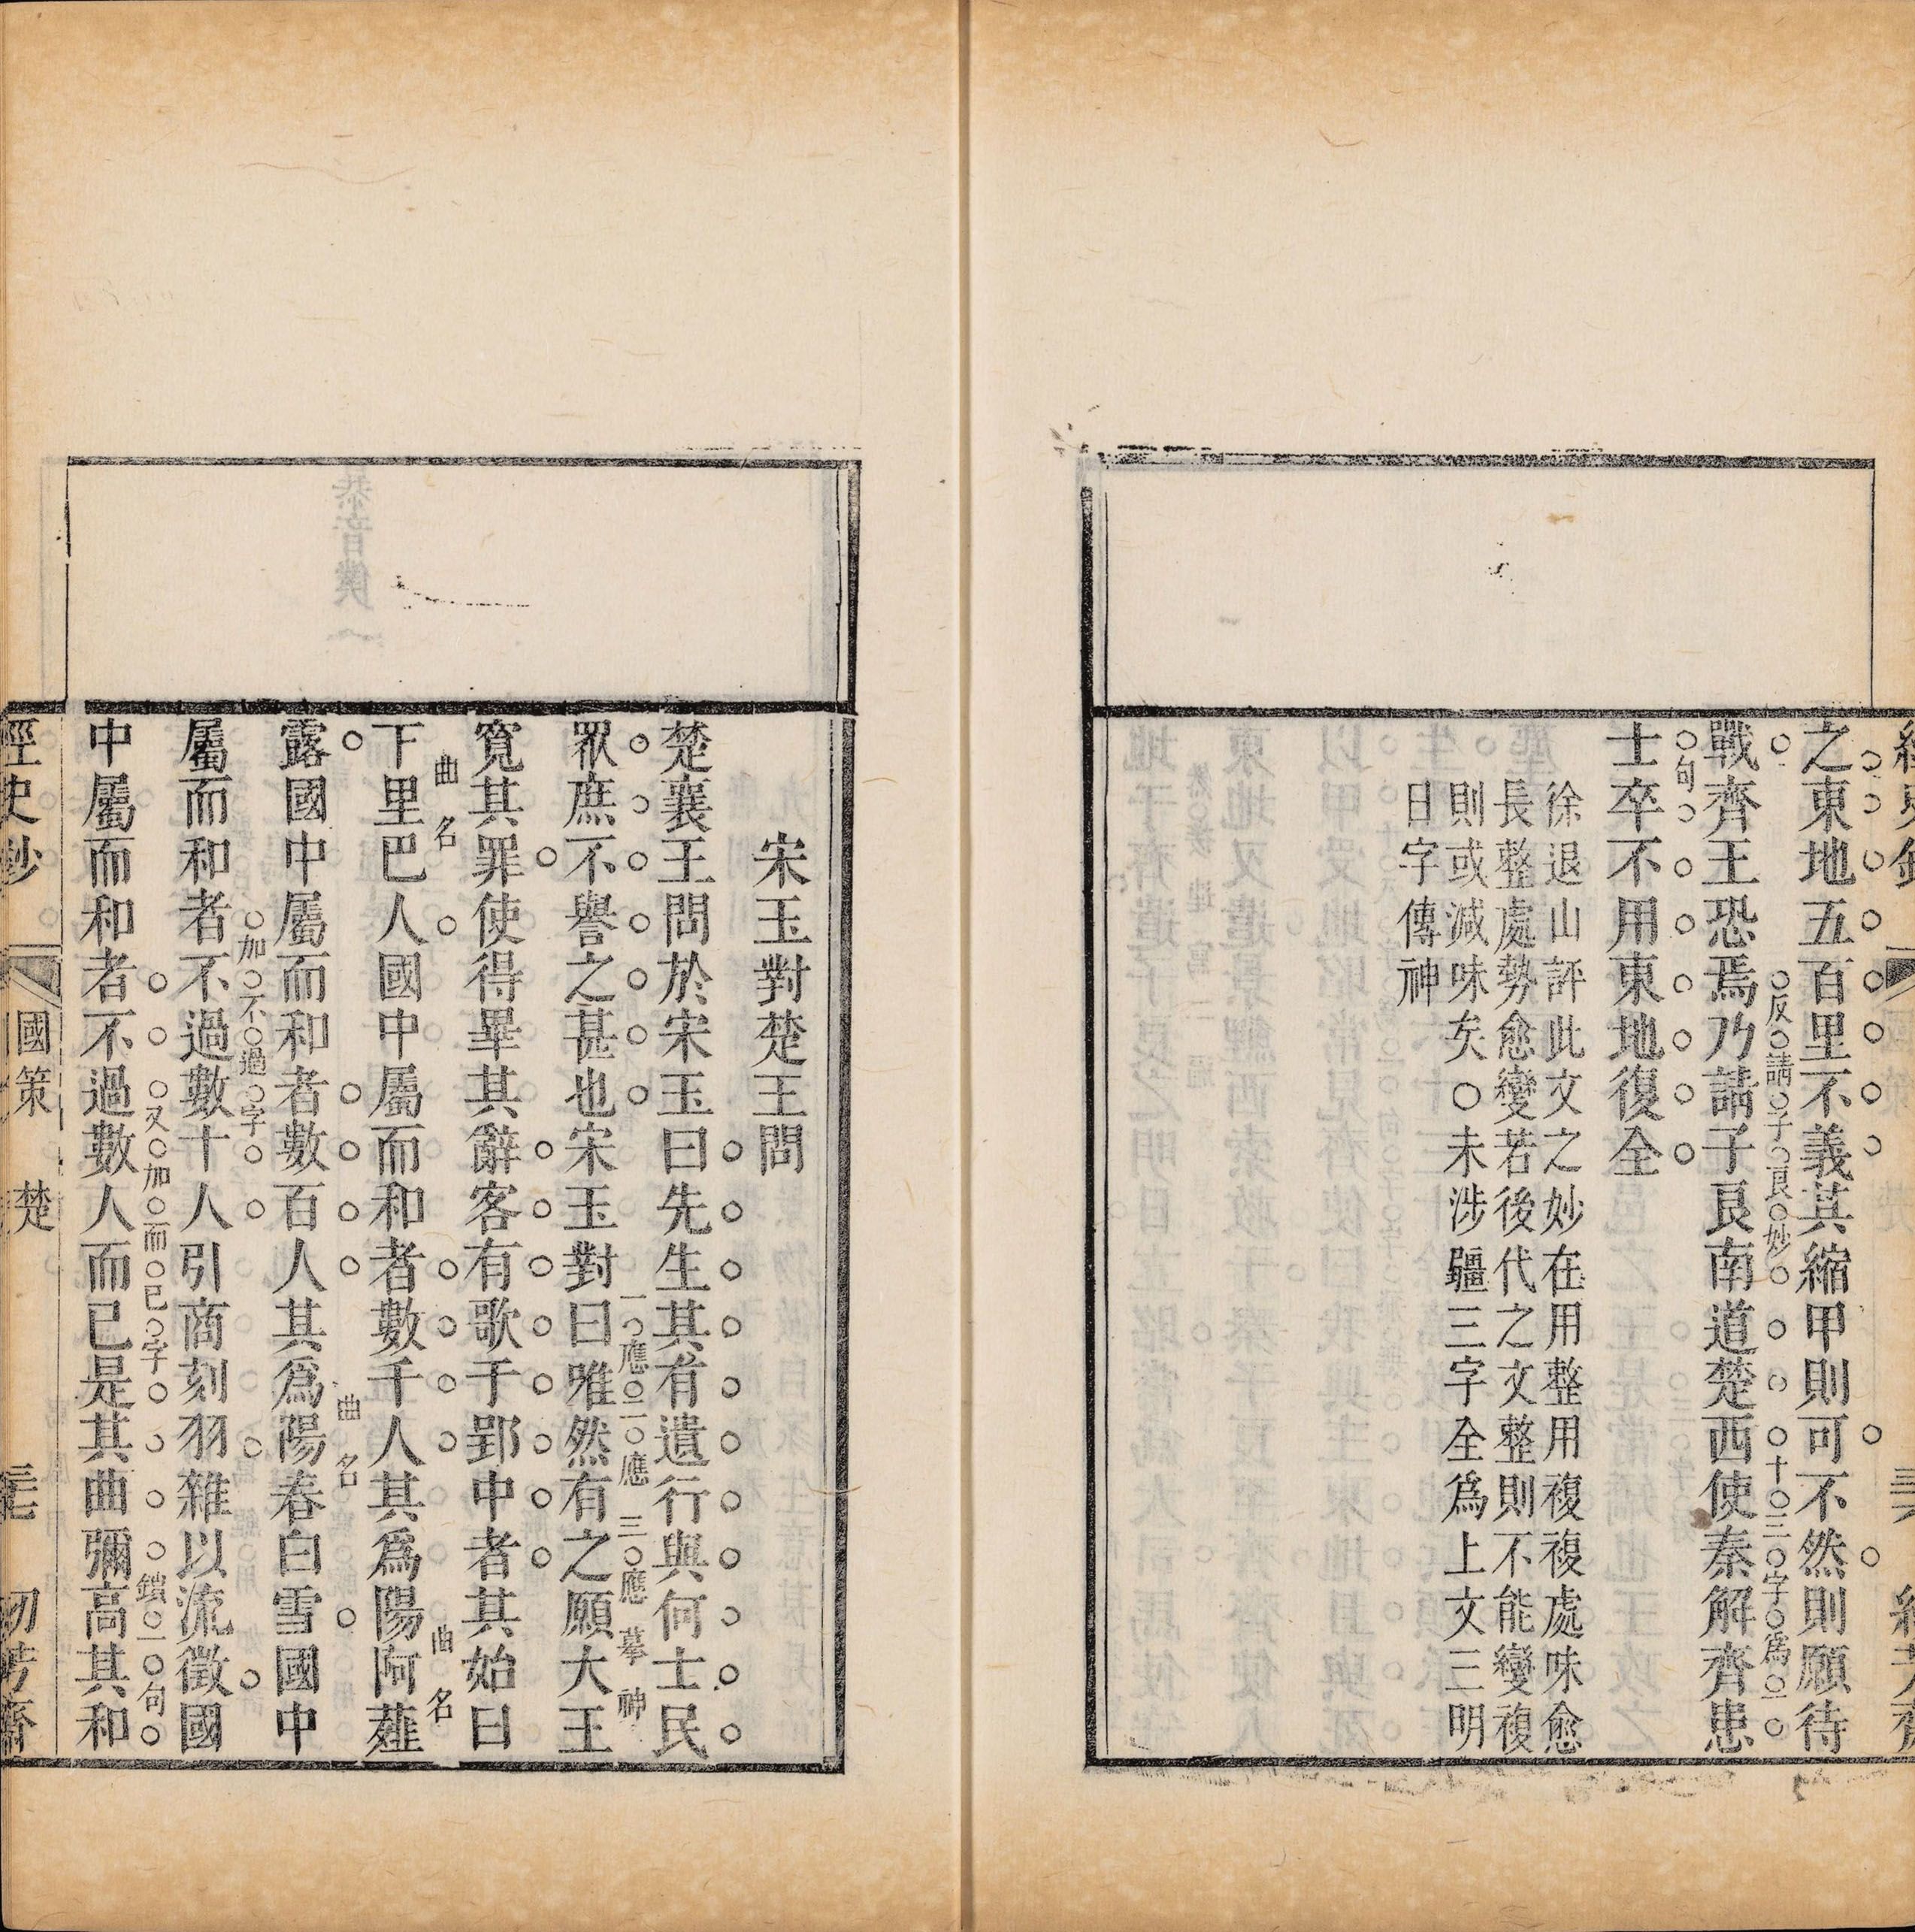 之東地五百里不義其縮甲則可不然則願待
反請子良妙十三字爲一
戰齊王恐焉乃請子良南道楚西使秦解齊患
句
士卒不用東地復全
徐退山評此文之妙在用整用複複處味愈
長整處勢愈變若後代之文整則不能變複
則或減味矣○未涉疆三字全爲上文三明
日字傳神
宋玉對楚王問
楚襄王問於宋玉曰先生其有遺行與何士民
一應二應三應摹神
眾庶不譽之甚也宋玉對曰唯然有之願大王
寬其罪使得畢其辭客有歌于郢中者其始曰
曲名 曲名
下里巴人國中屬而和者數千人其爲陽阿薤
曲名
露國中屬而和者數百人其爲陽春白雪國中
加不過字
屬而和者不過數十人引商刻羽雜以流徵國
又加而已字鎖一句
中屬而和者不過數人而已是其曲彌高其和
經史鈔 國策 楚